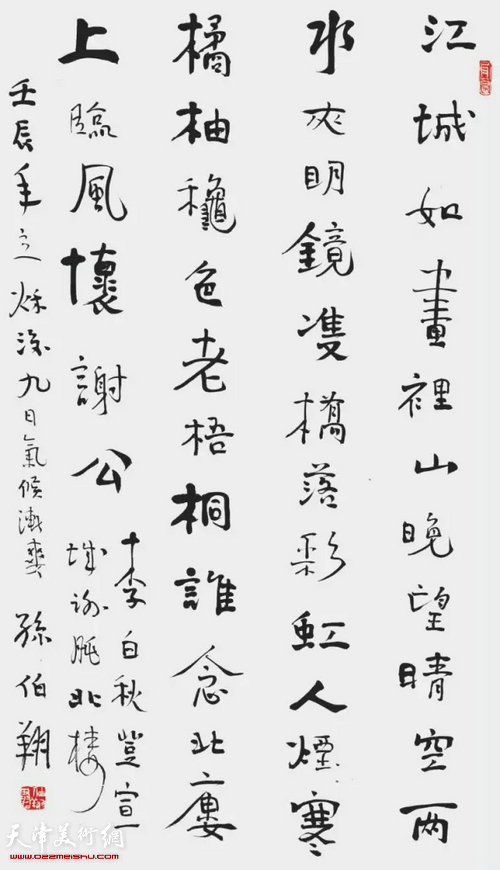 江城如畫裡山晚望晴空兩
水夾明鏡雙橋落彩虹人煙寒
橘柚龝色老梧桐誰念北廔
上臨風懷謝公
李白秋登宣
城謝朓北樓
壬辰年立秋後九日氣候漸爽 孫伯翔
天津美術網
www.022meishu.com